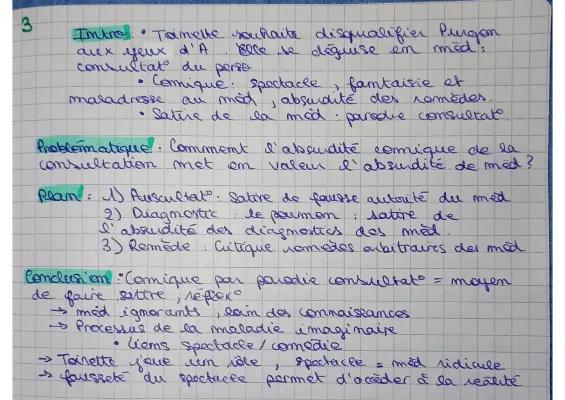 3
Intro : • Toinette souhaite disqualifier Purgon
aux yeux d'A. Elle se déguise en méd :
consultat° du perso
• Comique : spectacle, fantaisie et
maladresse au méd, absurdité des remèdes.
• Satire de la méd : parodie consultat°
Problématique : Comment l'absurdité comique de la
consultation met en valeur l'absurdité de méd ?
Plan : 1) Auscultat° : Satire de fausse autorité du méd
2) Diagnostic : le poumon : satire de
l'absurdité des diagnostics des méd.
3) Remède : Critique remèdes arbitraires des méd
Conclusion : Comique par parodie consultat° = moyen
de faire satire, réflex°
→ méd ignorants, loin des connaissances
→ Processus de la maladie imaginaire
• liens spectacle / comédie
→ Toinette joue un rôle, spectacle = méd ridicule
→ fausseté du spectacle permet d'accéder à la réalité